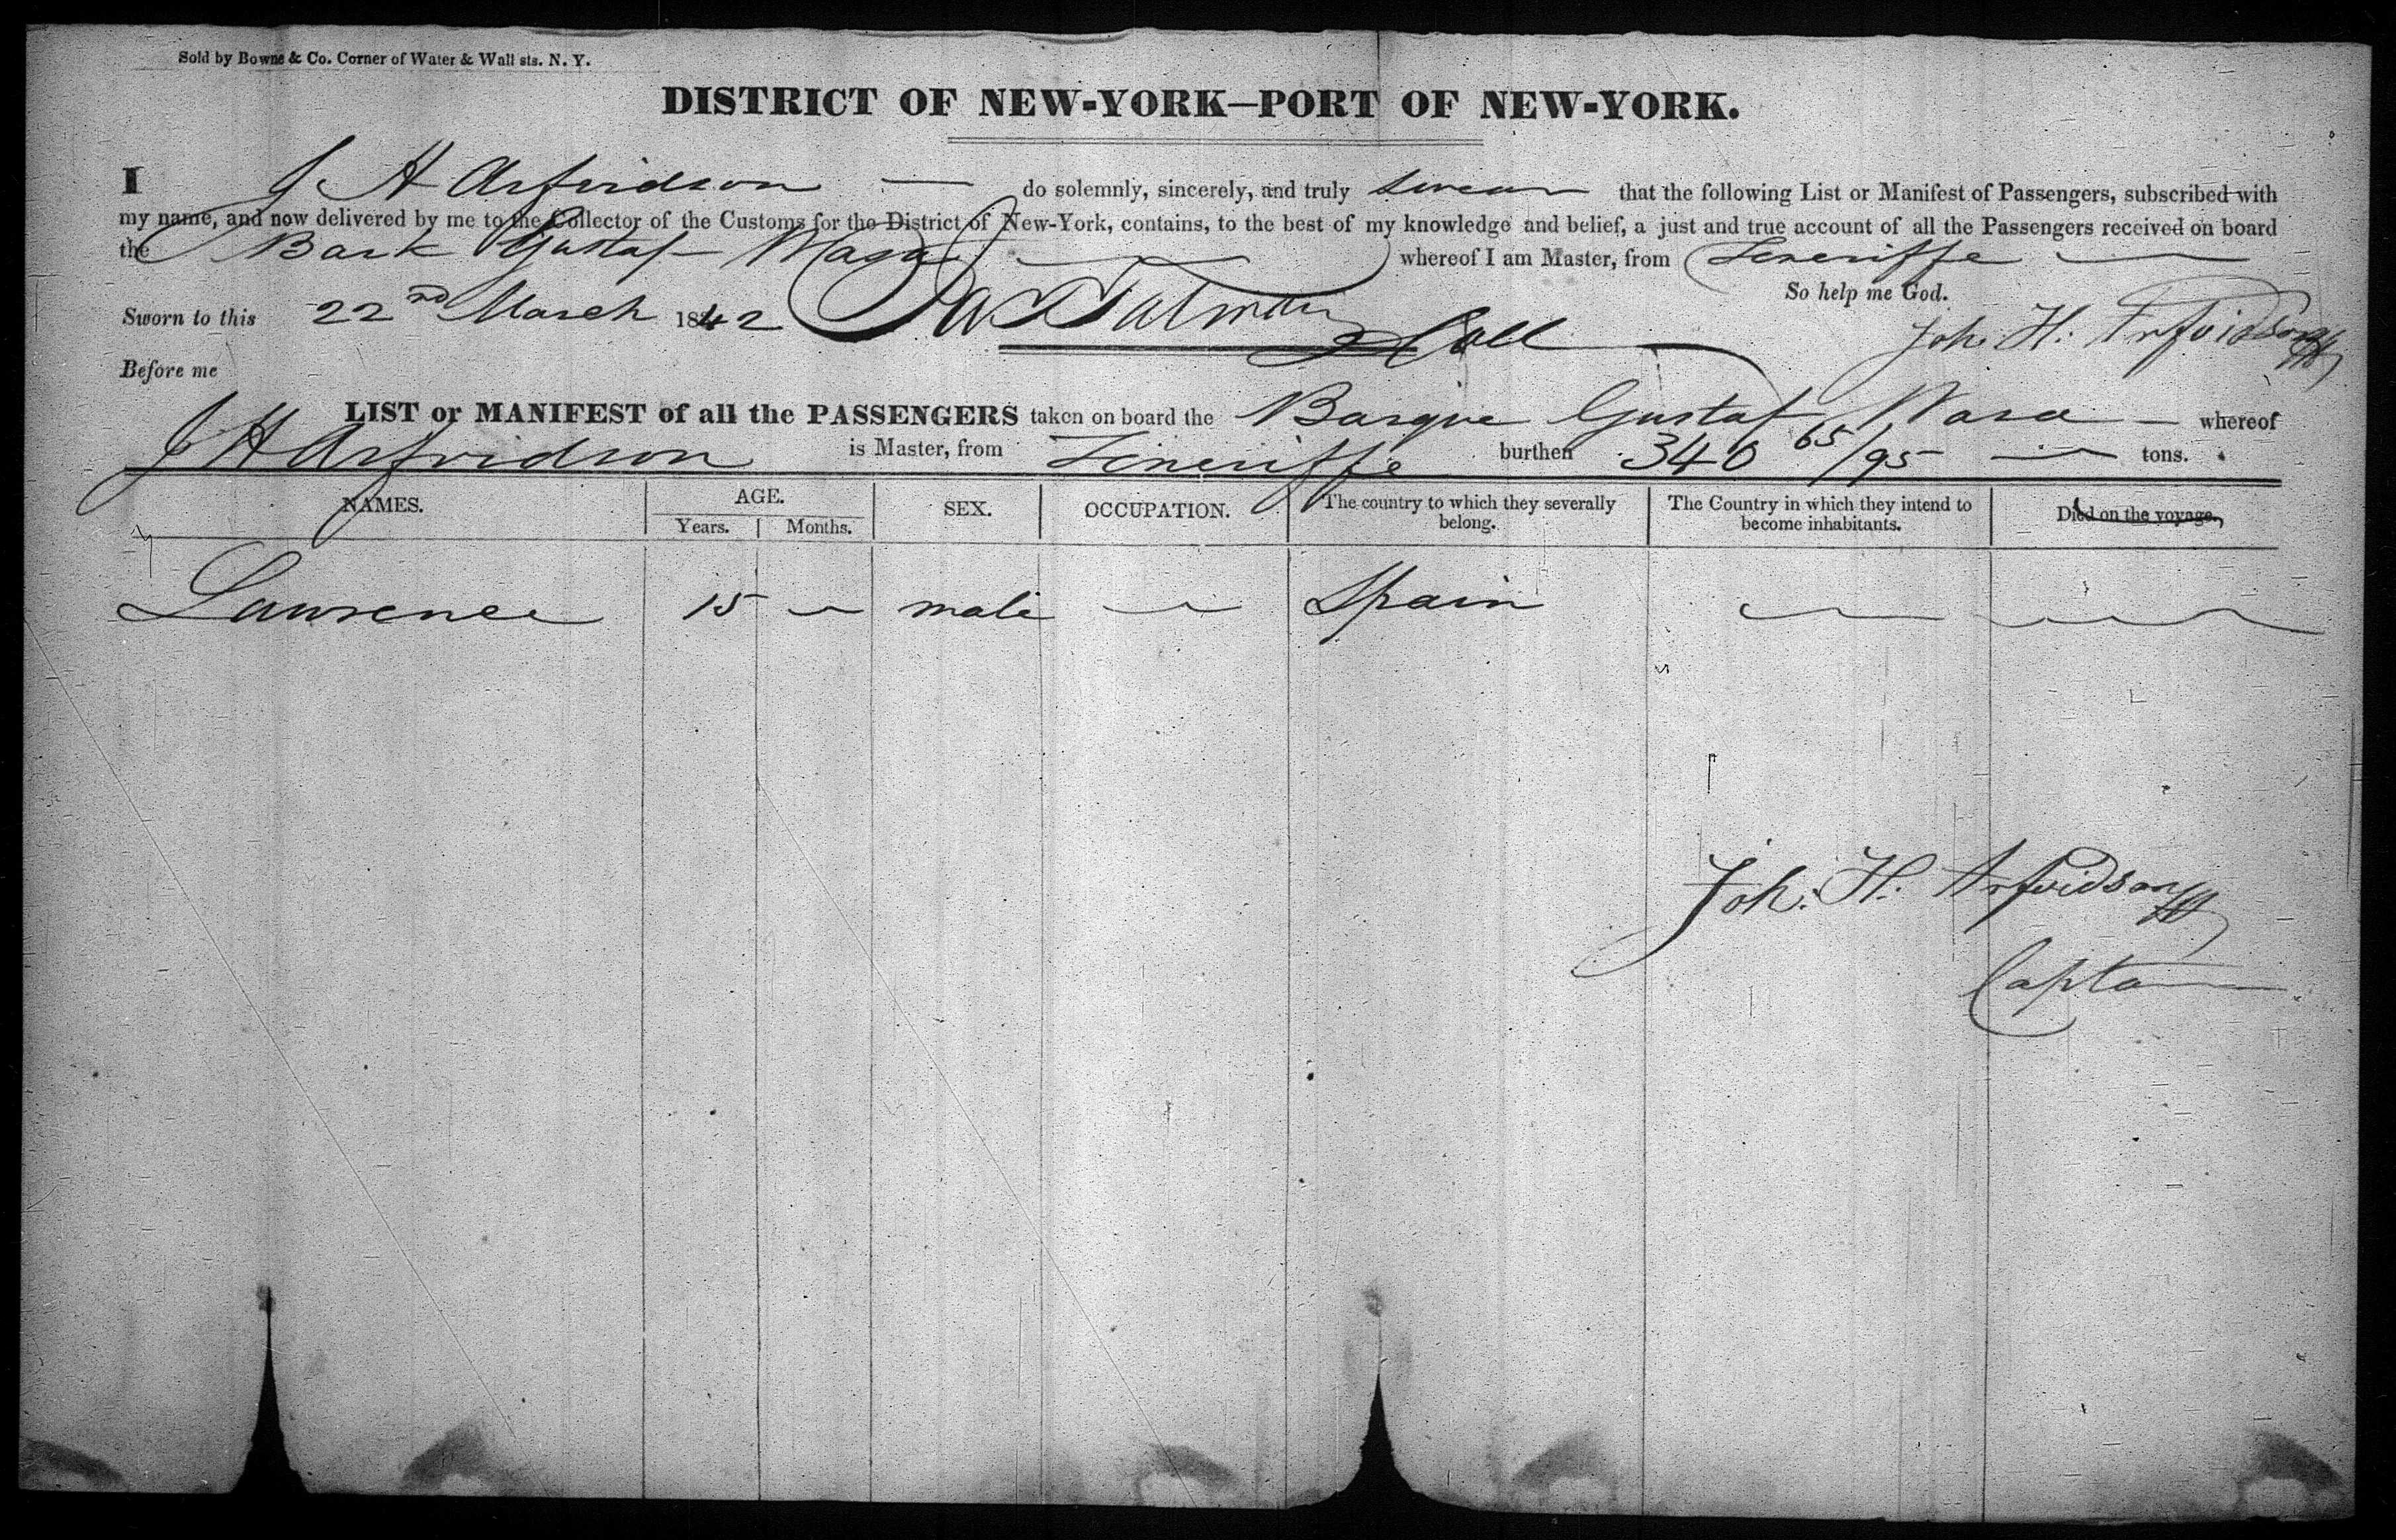 Sold by Bowne & Co. Corner of Water & Wall sts. N. Y.
DISTRICT OF NEW-YORK—PORT OF NEW-YORK.
I J H Arfvidson do solemnly, sincerely, and truly swear that the following List or Manifest of Passengers, subscribed with
my name, and now delivered by me to the Collector of the Customs for the District of New-York, contains, to the best of my knowledge and belief, a just and true account of all the Passengers received on board
the Bark Gustaf Wasa whereof I am Master, from Teneriffe
So help me God.
Sworn to this 22nd March 1842
Joh. H. Arfvidson
Before me
LIST or MANIFEST of all the PASSENGERS taken on board the Barque Gustaf Wasa whereof
J H Arfvidson is Master, from Teneriffe burthen 340 65/95 tons.
NAMES. AGE. SEX. OCCUPATION. The country to which they severally belong. The Country in which they intend to become inhabitants. Died on the voyage.
Years. Months.
Lawrence 15 male Spain
Joh. H. Arfvidson
Captn